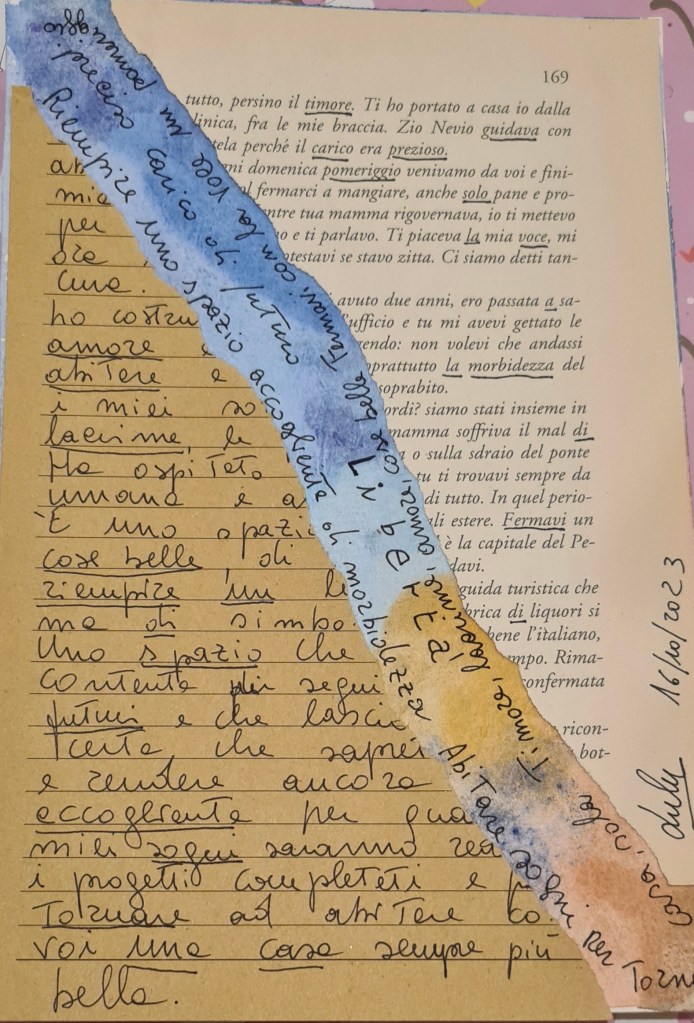 169
tutto, persino il timore. Ti ho portato a casa io dalla
linica, fra le mie braccia. Zio Nevio guidava con
tela perché il carico era prezioso.
gni domenica pomeriggio venivamo da voi e fini-
ol fermarci a mangiare, anche solo pane e pro-
ntre tua mamma rigovernava, io ti mettevo
no e ti parlavo. Ti piaceva la mia voce, mi
otestavi se stavo zitta. Ci siamo detti tan-
avuto due anni, ero passata a sa-
'ufficio e tu mi avevi gettato le
rendo: non volevi che andassi
oprattutto la morbidezza del
soprabito.
ordi? siamo stati insieme in
mamma soffriva il mal di
a o sulla sdraio del ponte
tu ti trovavi sempre da
di tutto. In quel perio-
ali estere. Fermavi un
è la capitale del Pe-
davi.
guida turistica che
brica di liquori si
bene l'italiano,
mpo. Rima-
confermata
ricon-
bot-
ab
mia
per
ora
cura.
ho costru
amore e
abitare e
i miei so
lacrime, le
Ha ospitato
umana e a
È uno spazi
cose belle, di
riempire un le
ma di simbo
Uno spazio che
contente di segui
futuri e che lasci
certa che saprei
e rendere ancora
accogliente per qua
miei sogni saranno rea
i progetti completati e p
Tornare ad abitare co
voi una casa sempre più
bella.
Riempire uno spazio accogliente di morbidezza Abitare sogni per Torna
prezioso carico di futuro
Fermavi, con la voce un pomeriggio
Timore, lacrime, amore, cose belle
Libertà
casa, sola
16/10/2023